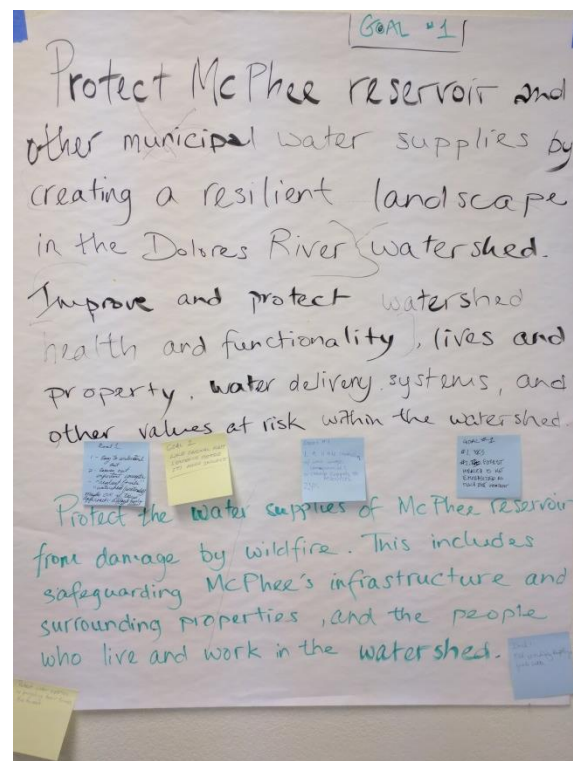 GOAL #1
Protect McPhee reservoir and
other municipal water supplies by
creating a resilient landscape
in the Dolores River watershed.
Improve and protect watershed
health and functionality, lives and
property, water delivery systems, and
other values at risk within the watershed.
GOAL #1
#1. YES
Protect the water supplies of McPhee reservoir
from damage by wildfire. This includes
safeguarding McPhee's infrastructure and
surrounding properties, and the people
who live and work in the watershed.